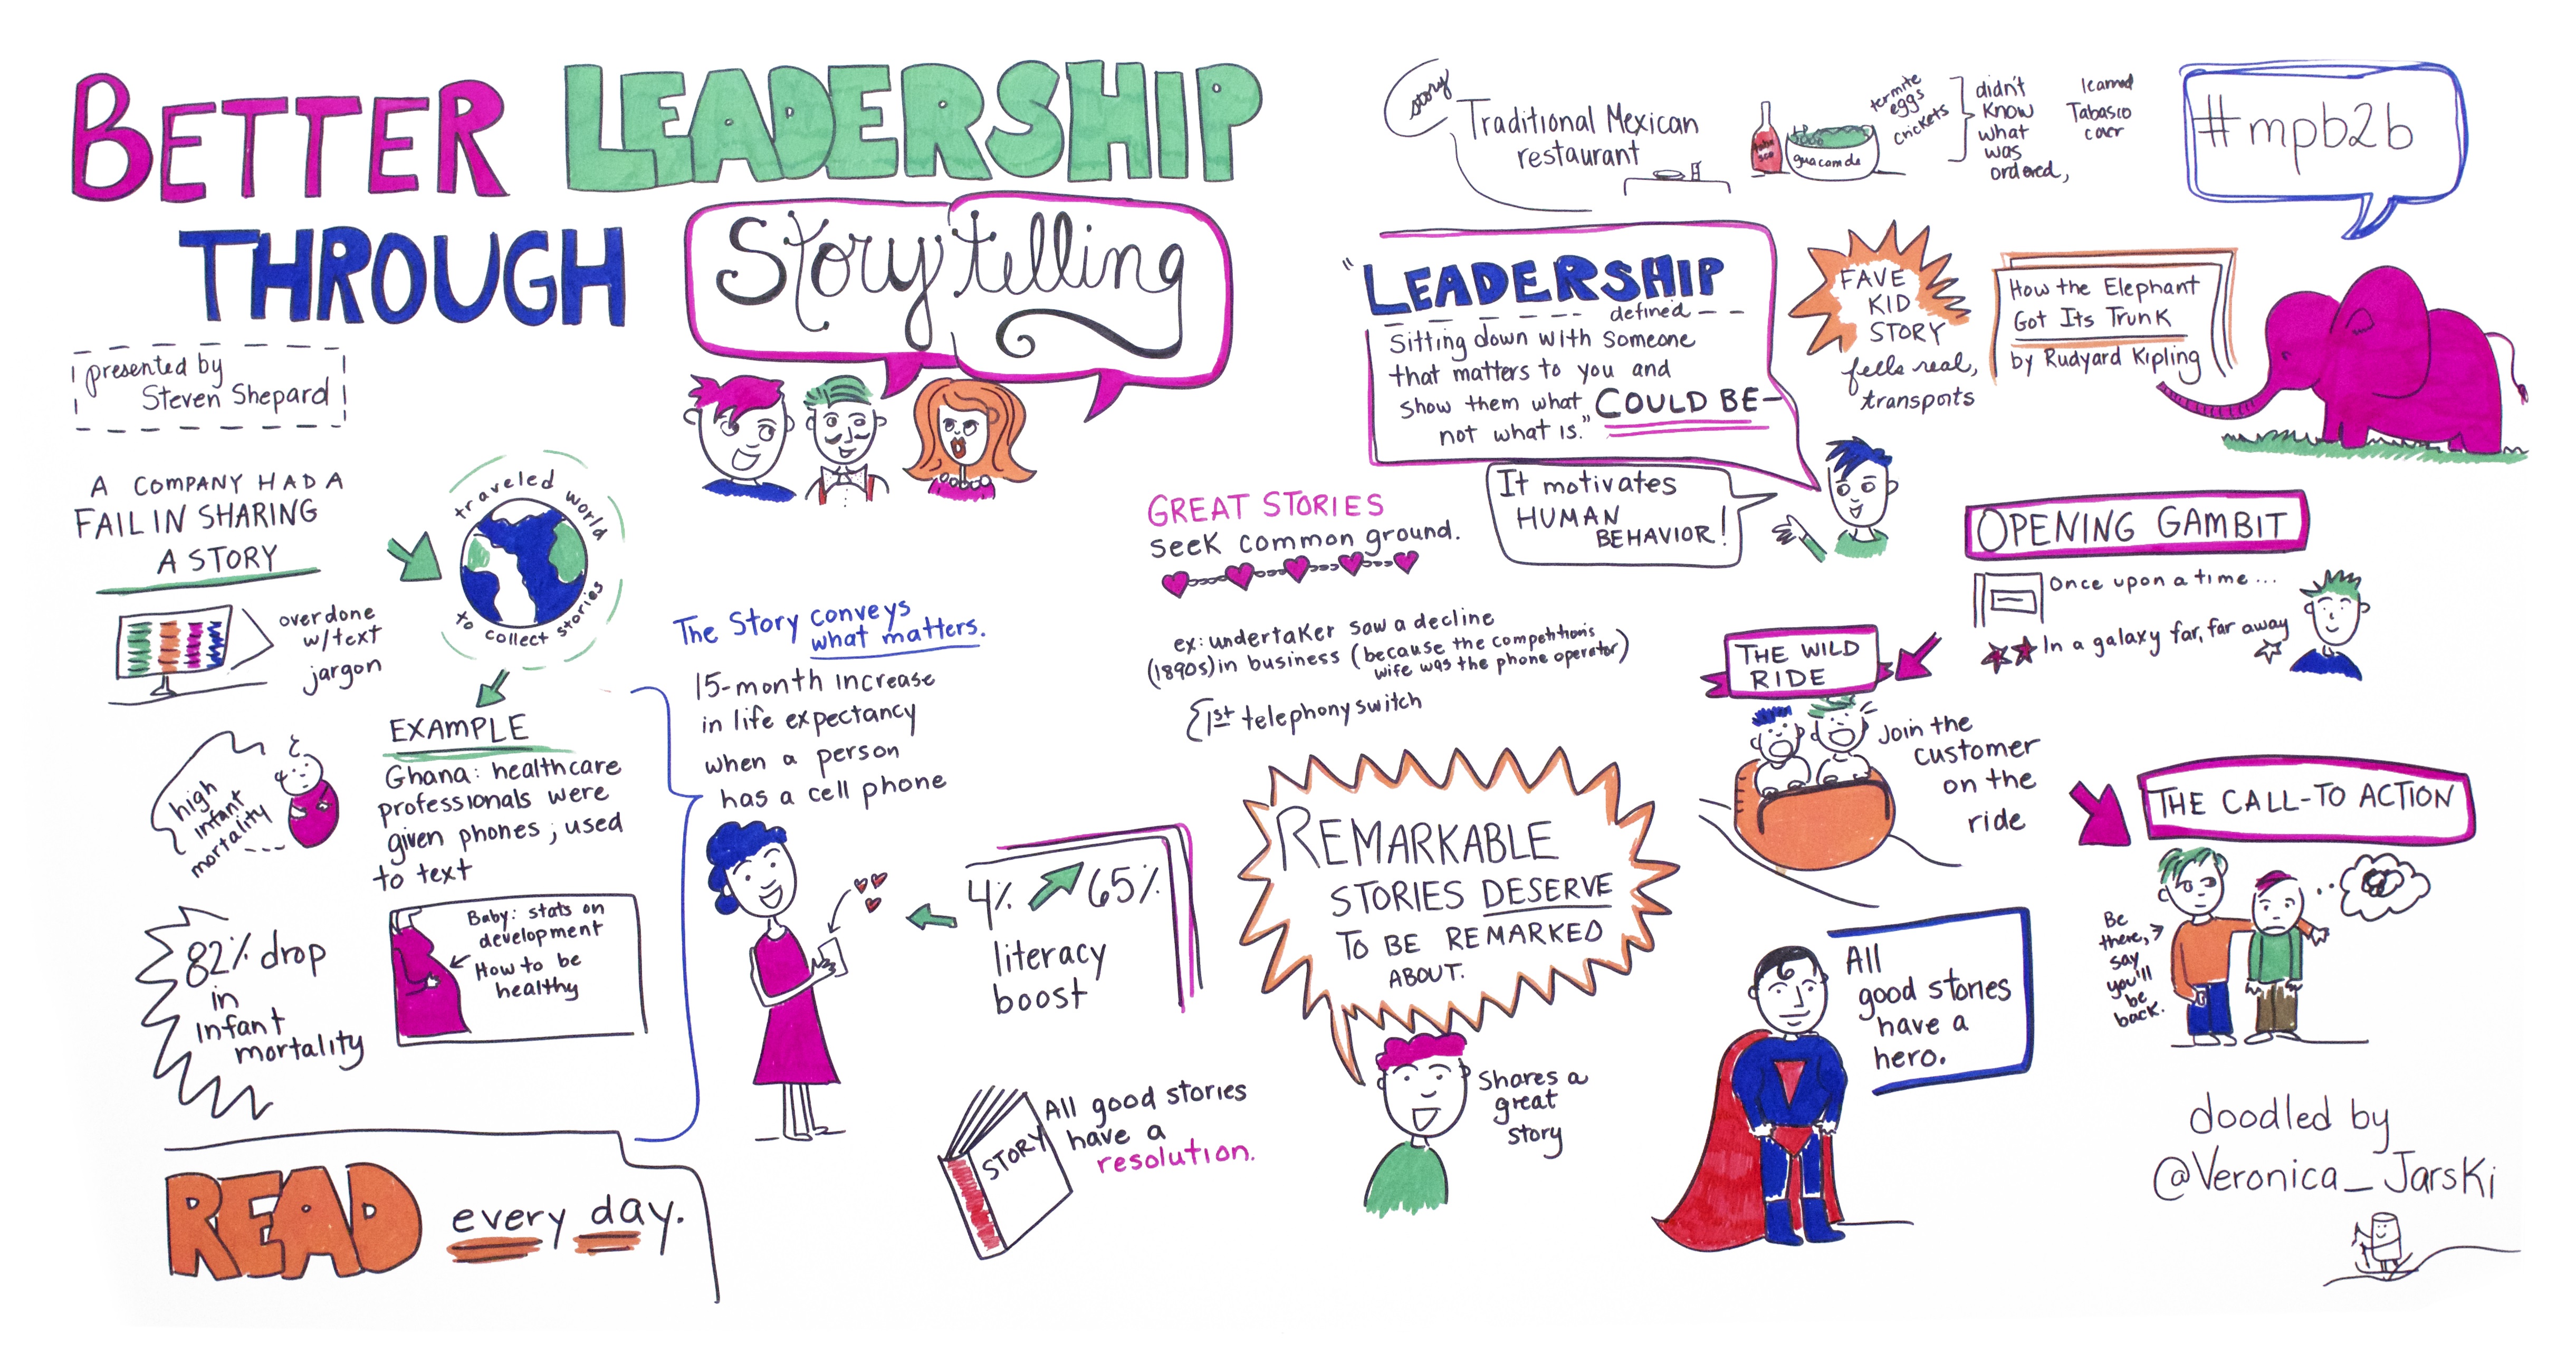 BETTER LEADERSHIP
THROUGH
Storytelling
presented by
Steven Shepard
A COMPANY HAD A
FAIL IN SHARING
A STORY
overdone
w/text
jargon
traveled world
to collect stories
EXAMPLE
Ghana: healthcare
professionals were
given phones; used
to text
high
infant
mortality
Baby: stats on
development
How to be
healthy
82% drop
in
infant
mortality
READ every day.
The Story conveys
what matters.
15-month increase
in life expectancy
when a person
has a cell phone
4% 65%
literacy
boost
STORY
All good stories
have a
resolution.
GREAT STORIES
seek common ground.
ex: undertaker saw a decline
(1890s) in business (because the competition's
wife was the phone operator)
1st telephony switch
REMARKABLE
STORIES DESERVE
TO BE REMARKED
ABOUT.
Shares a
great
story
story
Traditional Mexican
restaurant
taba
sco
guacamole
termite
eggs
crickets
didn't
know
what
was
ordered,
learned
Tabasco
#mpb2b
"LEADERSHIP
defined
Sitting down with someone
that matters to you and
show them what COULD BE—
not what is."
It motivates
HUMAN
BEHAVIOR!
FAVE
KID
STORY
feels real,
transports
How the Elephant
Got Its Trunk
by Rudyard Kipling
OPENING GAMBIT
Once upon a time...
In a galaxy far, far away
THE WILD
RIDE
Join the
customer
on the
ride
THE CALL-TO ACTION
Be
there,
say
you'll
be
back.
All
good stories
have a
hero.
doodled by
@Veronica_Jarski